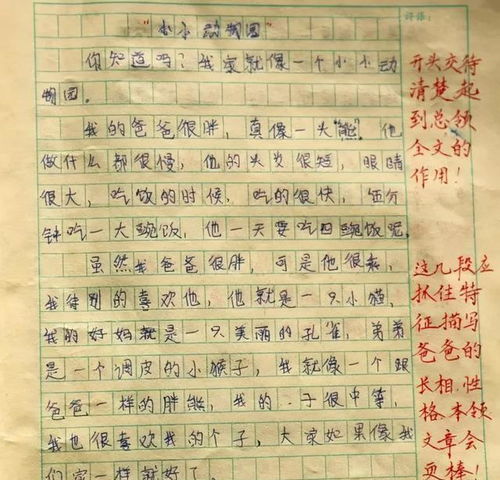 评语:
"小小动物园"
你知道吗?我家就像一个小小动
物园。
我的爸爸很胖,真像一头"熊"他
做什么都很慢,他的头发很短,眼睛
很大,吃饭的时候,吃的很快,五分
钟吃一大碗饭,他一天要吃四碗饭呢,
虽然我爸爸很胖,可是他很
我特别的喜欢他,他就是一只小猫,
我的好妈就是一只美丽的孔雀,弟弟
是一个调皮的小猴子,我就像一个跟
爸爸一样的胖熊,我的 子很中等,
我也很喜欢我的个子,大家如果像我
们家一样就好了。
开头交待
清楚起
到总领
全文的
作用!
这几段应
抓住特
征描写
爸爸的
长相,性
格.本领
文章会
更棒!